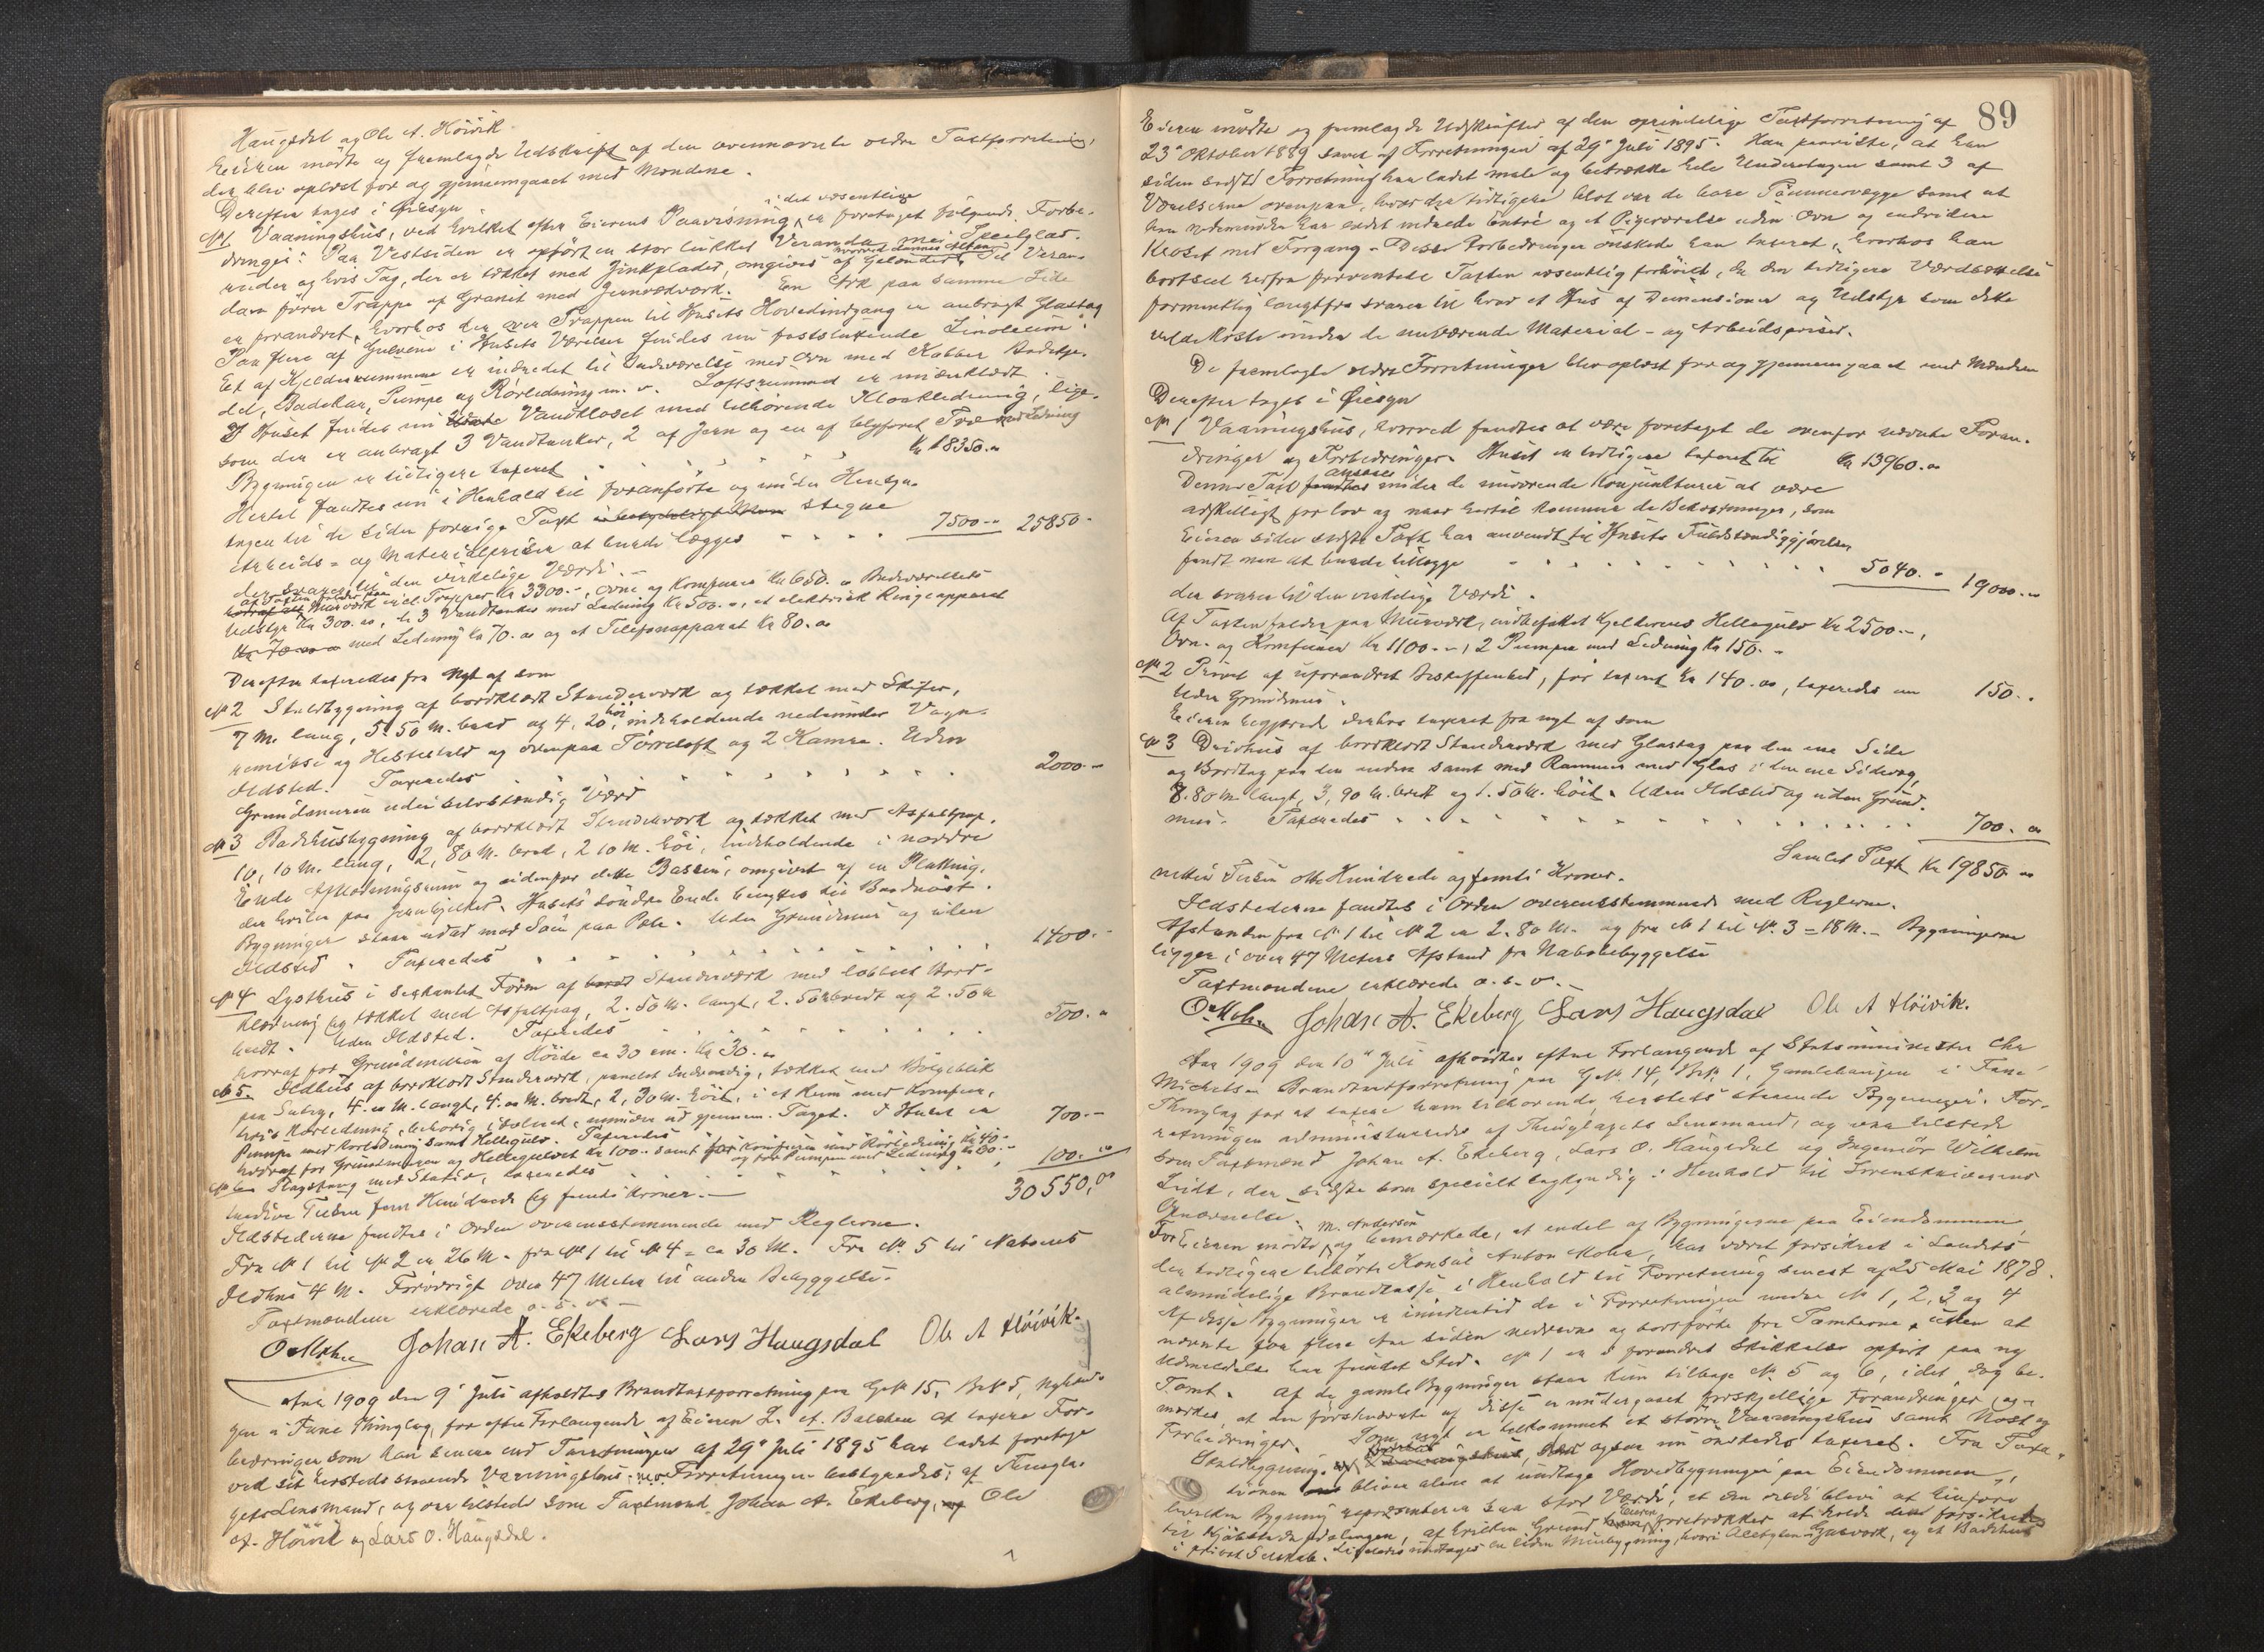 Haugsdal og Ole A. Höivik.
Eieren mödte og fremlagde Udskrift af den ovennævnte ældre Taxtforretning,
der blev oplæst for og gjennemgaaet med Mændene.
Derefter toges i Öiesyn
i det væsentlige
№ 1 Vaaningshus, ved hvilket efter Eierens Paavisning er foretaget fölgende Forbe-
dringer: Paa Vestsiden er opfört en stor lukket Veranda med Speilglas-
ruder og hvis Tag, der er tækket med Zinkplader, omgives af Gelænder. Til Veran-
daen förer Trappe af Granit med Jernrækværk. En Ark paa samme Side
er forandret, hvorhos der over Trappen til Husets Hovedindgang er anbragt Glastag
Paa flere af Gulvene i Husets Værelser findes nu fastsluttende Linoleum.
Et af Kjelderrummene er indredet til Badeværelse med Ovn med Kobber Badekje-
del, Badekar, Pumpe og Rörledning m. v. Loftsrummet er underklædt.
I Huset findes nu Vandkloset med tilhörende Kloakledning, lige-
som der er anbragt 3 Vandtanker, 2 af Jern og en af blyforet Træ med Ledning
Bygningen er tidligere taxeret Kr 18350.00
Hertil fandtes nu i Henhold til foranförte og under Hensyn-
tagen til de siden forrige Taxt stegne
Arbeids- og Materialpriser at burde lægges 7500.00 25850.-
der svarer til den virkelige Værdi.-
af Taxten falder paa Murværk incl. Trapper Kr 3300.-, Ovne og Komfurer Kr 650.00 Badeværelsets
Udstyr Kr 300.00, de 3 Vandtanker med Ledning Kr 500.00, et elektrisk Ringeapparat
med Ledning Kr 70.00 og et Telefonapparat Kr 80.00
Derefter taxeredes fra Nyt af som
№ 2 Staldbygning af bordklædt Stenderværk og tækket med Skifer,
7 M. lang, 5.50 M. bred og 4,20 höi, indeholdende nedenunder Vogn-
remisse og Hestestald og ovenpaa Törreloft og 2 Kamre. Uden
Ildsted. Taxeredes 2000.-
Grundmuren uden selvstændig Værd
№ 3 Badehusbygning af bordklædt Stenderværk og tækket med Asfaltpap.
10,10 M. lang, 2,80 M. bred, 2 10 M. höi, indeholdende i nordre
Ende Afklædningsrum og udenfor dette Bassin, omgivet af en Platting,
der hviler paa Jernbjelker. Husets söndre Ende benyttes til Baadnöst.
Bygningen staar udad mod Söen paa Pæle. Uden Grundmur og uden
Ildsted. Taxeredes 1400.-
№ 4 Lysthus i sexkantet Form af Stenderværk med labbet Bord-
klædning og tækket med Asfaltpap, 2.50 M. langt, 2.50 M bredt og 2.50 M
höidt. Uden Ildsted. Taxeredes 500.-
hvoraf for Grundmuren af Höide ca 30 cm. Kr 30.00
№ 5. Ildhus af bordklædt Stenderværk, panelet indvendig, tækket med Bölgeblik
paa Sutag, 4.00 M. langt, 4.00 M. bredt, 2,30 M. höit, i et Rum med Komfur,
hvis Rörledning, behörig isoleret, munder ud gjennem Taget. I Huset en
Pumpe med Rörledning samt Hellegulv. Taxeredes 700.-
hvoraf for Grundmuren og Hellegulvet Kr 100.- samt for Komfuren med Rörledning Kr 40.-
og for Pumpen med Ledning Kr 60.-
№ 6 Flagstang med Stativ, taxeredes 100.00
30550,00
tredive Tusen fem Hundrede og femti Kroner.-
Ildstederne fandtes i Orden overensstemmende med Reglerne.
Fra № 1 til № 2 er 26 M. fra № 1 til № 4 = ca 30 M. Fra № 5 til Naboens
Ildhus 4 M. Forövrigt over 47 Meter til anden Bebyggelse.
Taxtmændene erklærede o. s. v.-
O Mohn Johan A. Ekeberg Lars Haugsdal Ole A Höivik.
Aar 1909 den 9de Juli afholdtes Brandtaxtforretning paa G№ 15, B№ 5,
i Fane Thinglag, for efter Forlangende af Eieren L. A. Balchen at taxere For-
bedringer som han senere end Forretningen af 29de Juli 1895 har ladet foretage
ved sit hersteds staaende Vaaningshus. Forretningen bestyredes af Thingla-
gets Lensmand, og var tilstede som Taxtmænd Johan A. Ekeberg, Ole
A. Höivik og Lars O. Haugsdal.
89
Eieren mödte og fremlagde Udskrifter af den oprindelige Taxtforretning af
23de Oktober 1889 samt af Forretningen af 29de Juli 1895. Han paaviste, at han
siden sidste Forretning har ladet male og betrække hele Underetagen samt 3 af
Værelserne ovenpaa, hvor der tidligere blot var de bare Tömmervægge samt at
han nedenunder har ladet indrede Entré og et Pigeværelse uden Ovn og endvidere
Kloset med Forgang. Disse Forbedringer önskede han taxeret, hvorhos han
bortseet herfra forventede Taxten væsentlig forhöiet, da den tidligere Værdsættelse
formentlig langtfra svarer til hvad et Hus af Dimensioner og Udstyr som dette
vilde koste under de nuværende Material- og Arbeidspriser.
De fremlagte ældre Forretninger blev oplæst for og gjennemgaaet med Mændene
Derefter toges i Öiesyn
№ 1 Vaaningshus, hvorved fandtes at være foretaget de ovenfor nævnte Foran-
dringer og Forbedringer. Huset er tidligere taxeret til Kr 13960.00
ansaaes
Denne Taxt under de nuværende Konjunkturer at være
adskilligt for lav og naar hertil kommer de Bekostninger, som
Eieren siden sidste Taxt har anvendt til Husets Fuldstændiggjörelse
fandt man at burde tillægge 5040.- 19000.00
der svarer til den virkelige Værdi.
Af Taxten falder paa Murværk, indbefattet Kjelderens Hellegulv Kr 2500.-,
Ovn- og Komfurer Kr 1100.-, 2 Pumper med Ledning Kr 150.-
№ 2 Privet af uforandret Beskaffenhed, för taxeret Kr 140.00, taxeredes nu 150.-
Uden Grundmur.
Eieren begjærede derhos taxeret fra nyt af som
№ 3 Drivhus af bordklædt Stenderværk med Glastag paa den ene Side
og Bordtag paa den anden samt med Rammer med Glas i den ene Sidevæg,
8.80 M. langt, 3,90 M. bredt og 1.50 M. höit. Uden Ildsted og uden Grund-
mur. Taxeredes 700.00
Samlet Taxt Kr 19850.00
nitten Tusen otte Hundrede og femti Kroner.
Ildstederne fandtes i Orden overensstemmende med Reglerne.
Afstanden fra № 1 til № 2 er 2.80 M. og fra № 1 til № 3 = 18 M.- Bygningerne
ligger i over 47 Meters Afstand fra Nabobebyggelse
Taxtmændene erklærede o. s. v.-
O Mohn Johan A. Ekeberg Lars Haugsdal Ole A Höivik.
Aar 1909 den 10de Juli afholdtes efter Forlangende af Statsminister Chr
Michelsen Brandtaxtforretning paa G№ 14, B№ 1, Gamlehaugen i Fane
Thinglag for at taxere ham tilhörende, hersteds staaende Bygninger. For-
retningen administreredes af Thinglagets Lensmand, og var tilstede
som Taxtmænd Johan A. Ekeberg, Lars O. Haugsdal og Ingeniör Wilhelm
, den sidste som specielt sagkyndig i Henhold til Sorenskriverens
Opnævnelse.
For Eieren mödte M. Andersen og bemærkede, at endel af Bygningerne paa Eiendommen,
der tidligere tilhörte Konsul Anton Mohr, har været forsikret i Landets
almindelige Brandkasse i Henhold til Forretning senest af 25 Mai 1878.
Af disse Bygninger er imidlertid de i Forretningen under № 1, 2, 3 og 4
nævnte for flere Aar siden nedrevne og bortförte fra Tomterne, uden at
Udmeldelse har fundet Sted. № 1 er i forandret Skikkelse opfört paa ny
Tomt. Af de gamle Bygninger staar kun tilbage № 5 og 6, idet dog be-
mærkes, at den förstnævnte af disse er undergaaet forskjellige Forandringer og
Forbedringer. Som nyt er tilkommet et större Vaaningshus samt Nöst og
Staldbygning, og nu önskedes taxeret. Fra Taxa-
tionen bliver alene at undtage Hovedbygningen paa Eiendommen,
hvilken Bygning repræsenterer saa stor Værdi, at den vilde blive at henföre
til Kjöbstadsafdelingen, af hvilken Grund Eieren foretrækker at holde den forsikret
i privat Selskab. Ligeledes undtages en liden Murbygning, hvori Acetylen-Gasværk, og et Badehus